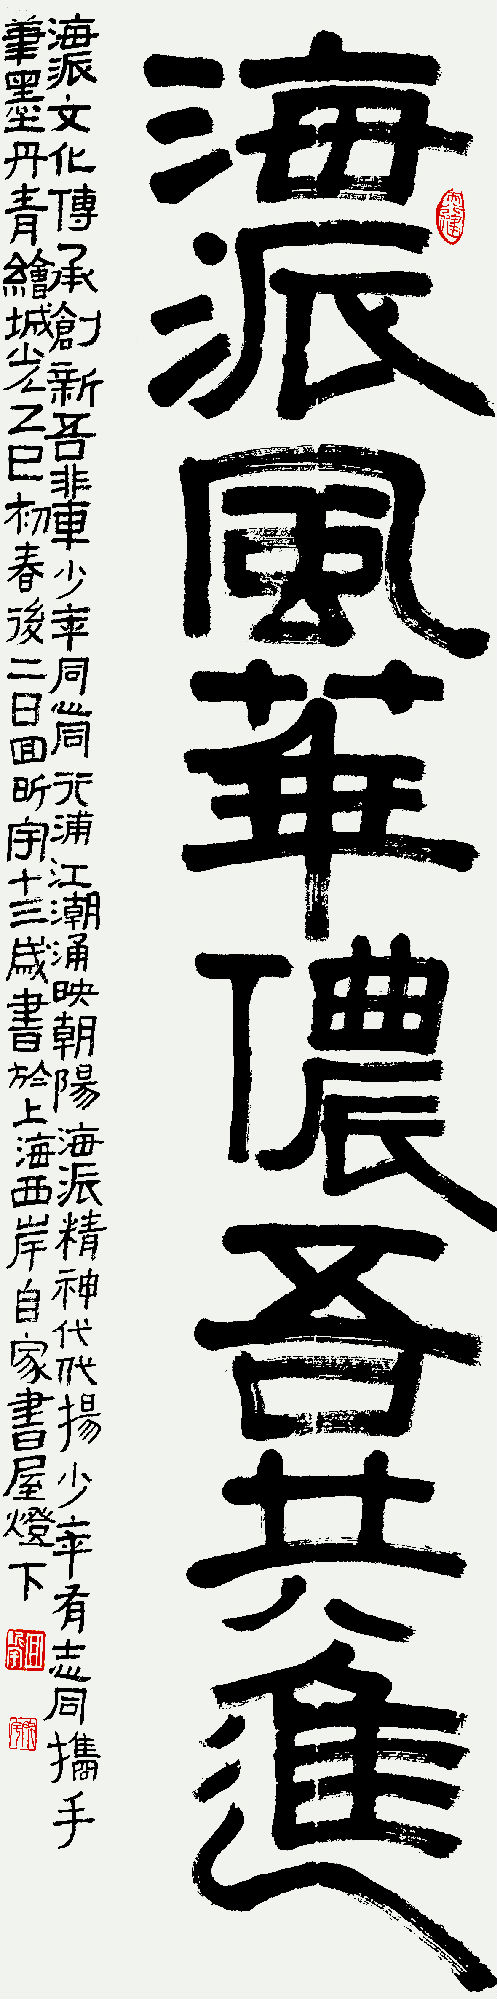 海派風華儂吾共進
海派文化傳承創新吾輩少年同心同行浦江潮涌映朝陽海派精神代代揚少年有志同攜手
筆墨丹青繪城光乙巳初春後二日回昕宇十三歲書於上海西岸自家書屋燈下